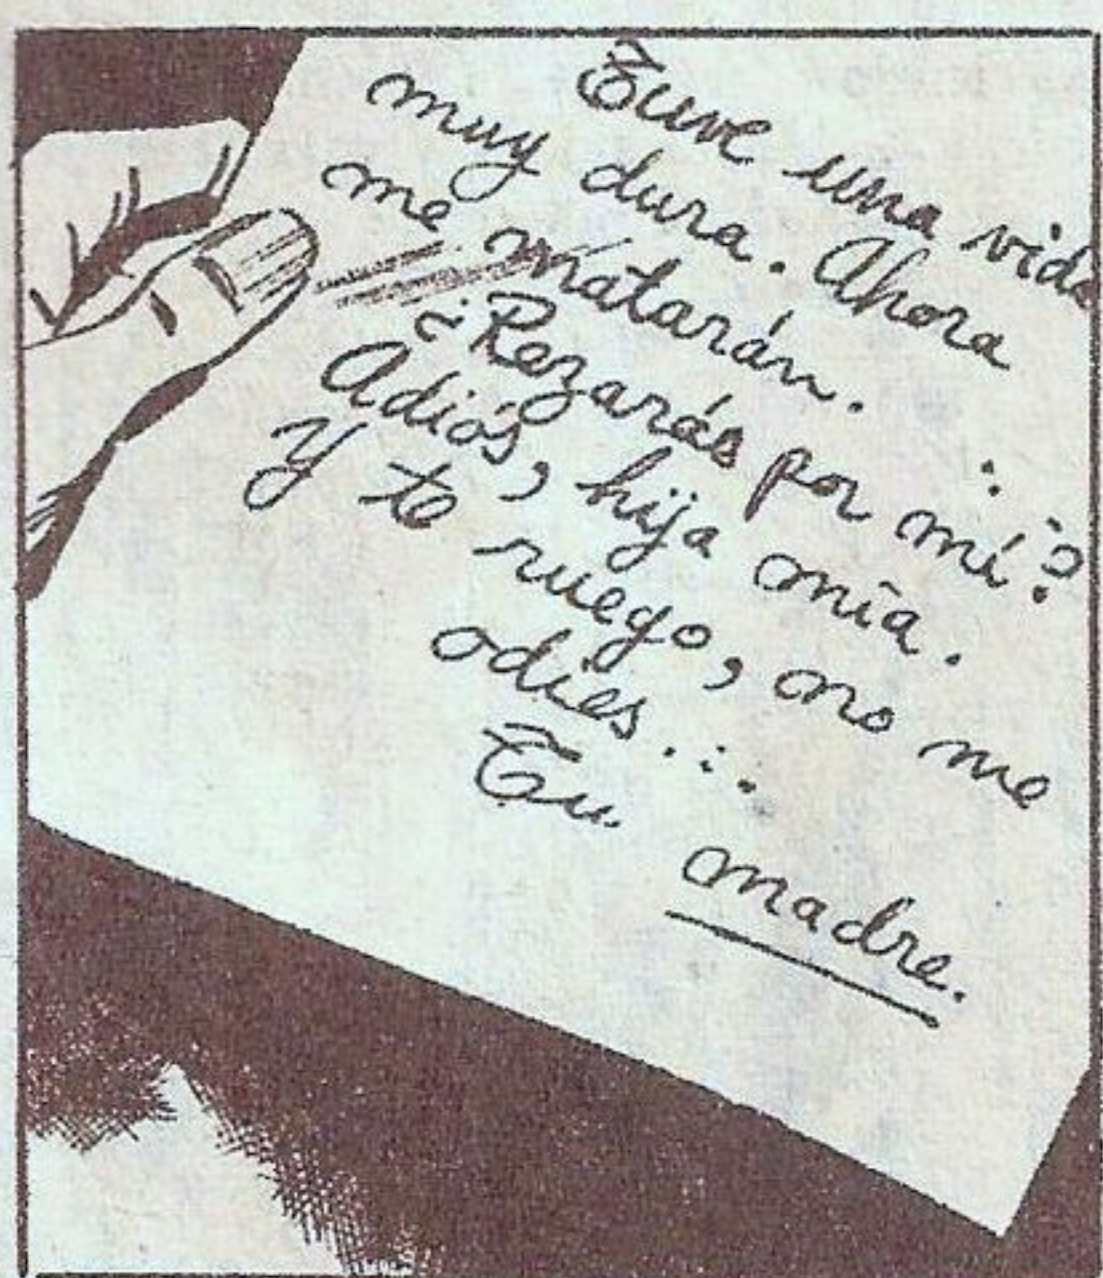 Tuve una vida
muy dura. Ahora
me matarán...
¿Rezarás por mí?
Adiós, hija mía.
Y te ruego, no me
odies...
Tu madre.